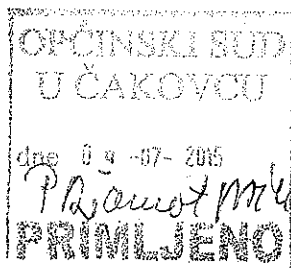 OPĆINSKI SUD
U ČAKOVCU
dne 09 -07- 2015
PRIMLJENO